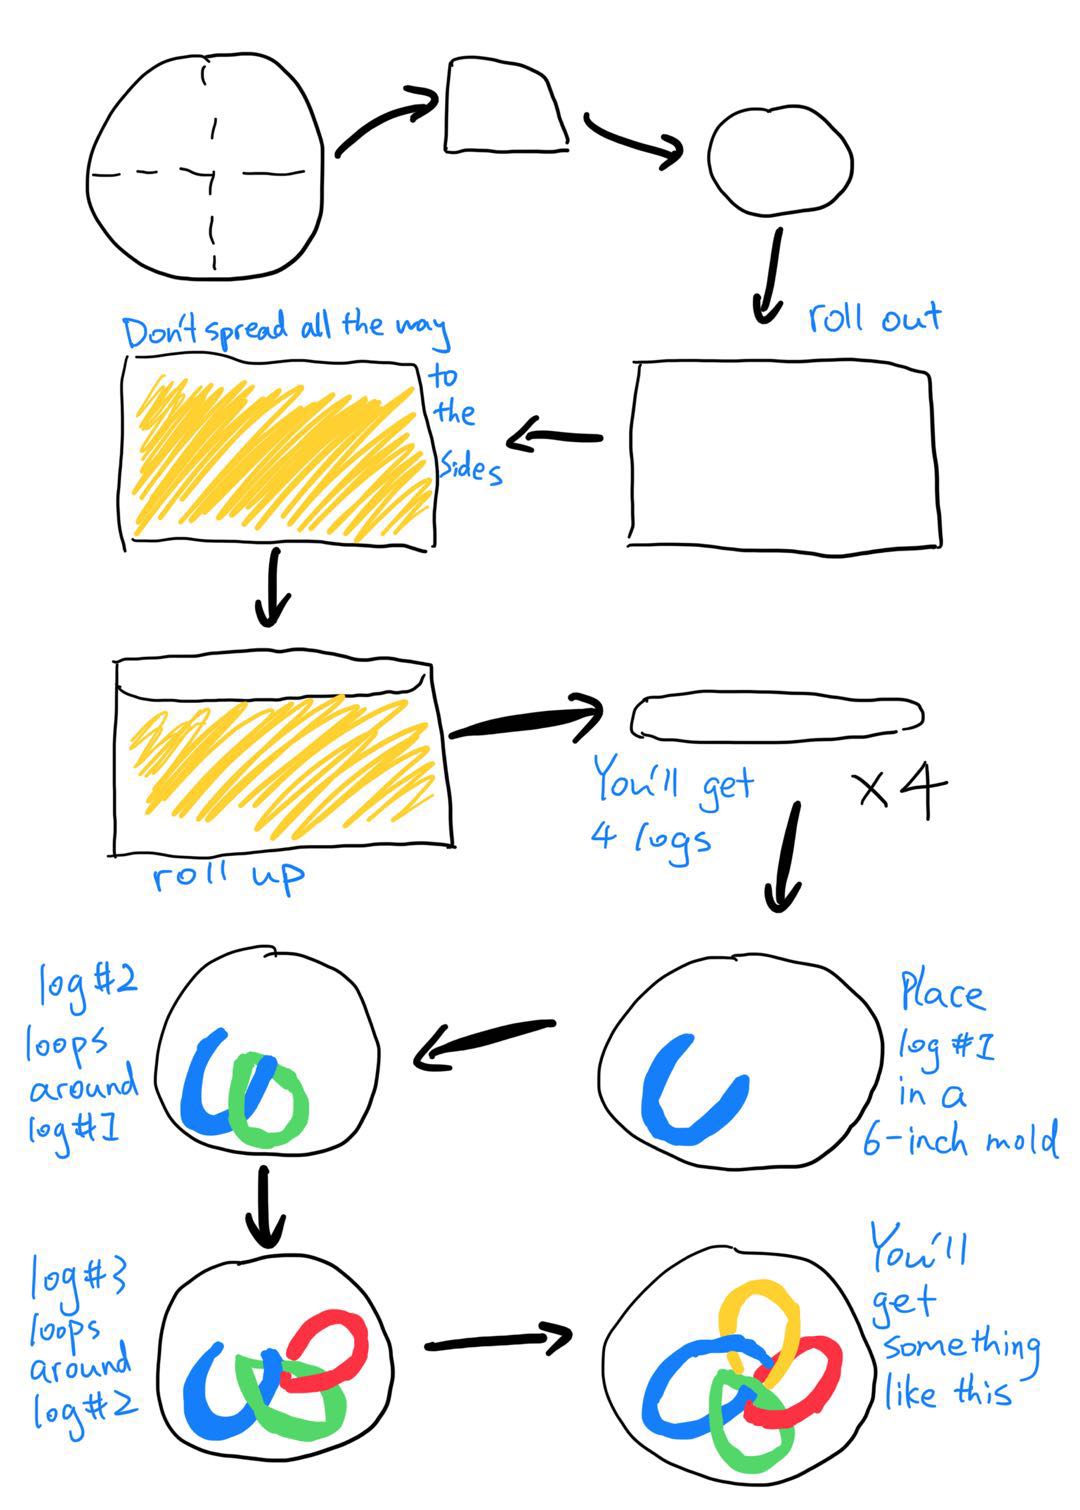 roll out
Don't spread all the way
to
the
sides
roll up
You'll get
4 logs
x4
Place
log #1
in a
6-inch mold
log #2
loops
around
log #1
log #3
loops
around
log #2
You'll
get
something
like this